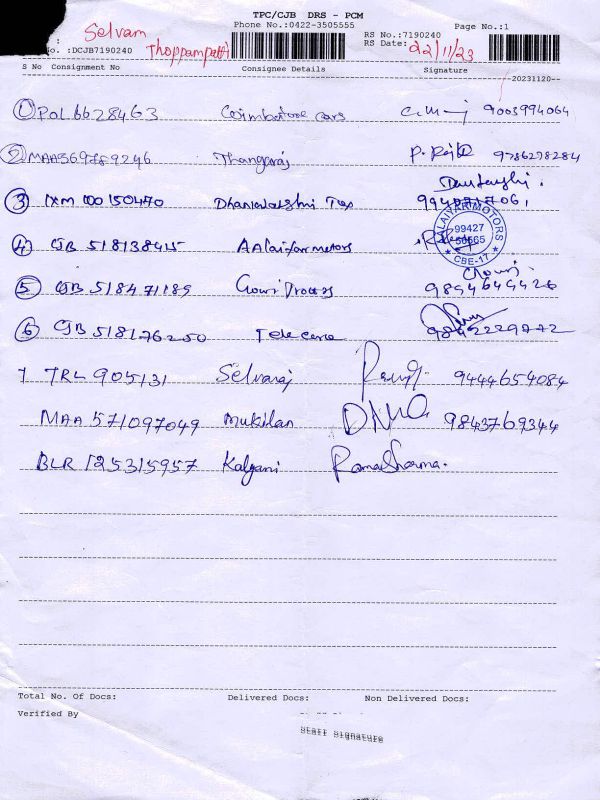 TPC/CJB DRS - PCM
Phone No.:0422-3505555
Page No.:1
Selvam
RS No.:7190240
No. :DCJB7190240
Thoppampatti
RS Date: 22/11/23
S No Consignment No Consignee Details Signature
--20231120--
1 POL6628463 Coimbatore cars 9003994064
2 MAA569789246 Thangaraj P. 9786278284
3 IXM 100150470
4 CJB 518138445 AAlaiyar motors
ALAIYAR MOTORS
99427
CBE-17
5 CJB 518471189 Gowri Process Gowri
6 CJB 518176250 Tele care 9842229772
7 TRL 905131 Selvaraj 9444654084
MAA 571097049 Mukilan 9843769344
BLR 125315957 Kalyani Ramasharma.
Total No. Of Docs: Delivered Docs: Non Delivered Docs:
Verified By
Staff Signature